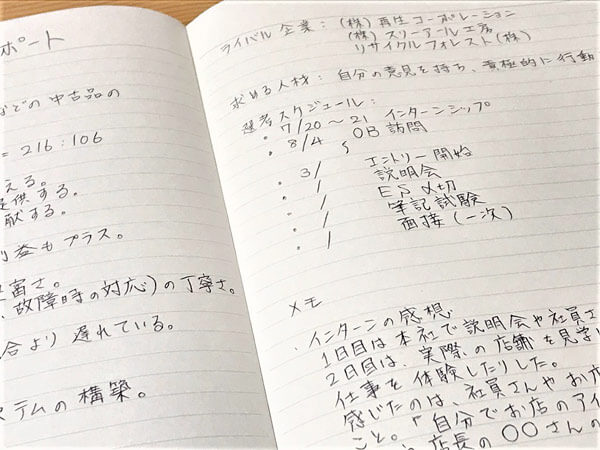 ポート
などの中古品の
= 216:106
える。
提供する。
献する。
利益もプラス。
富さ。
、故障時の対応)の丁寧さ。
合より遅れている。
ステムの構築。
ライバル企業: (株)再生コーポレーション
(株)スリーアール工房
リサイクルフォレスト(株)
求める人材: 自分の意見を持ち、積極的に行動
選考スケジュール:
・7/20~21 インターンシップ
・8/4 OB訪問
・3/ エントリー開始
・/ 説明会
・/ ES〆切
・/ 筆記試験
・/ 面接(一次)
メモ
・インターンの感想
1日目は本社で説明会や社員さ
2日目は、実際の店舗を見学
仕事を体験したりした。
感じたのは、社員さんやお店
こと。「自分でお店のアイ
店長の〇〇さんの